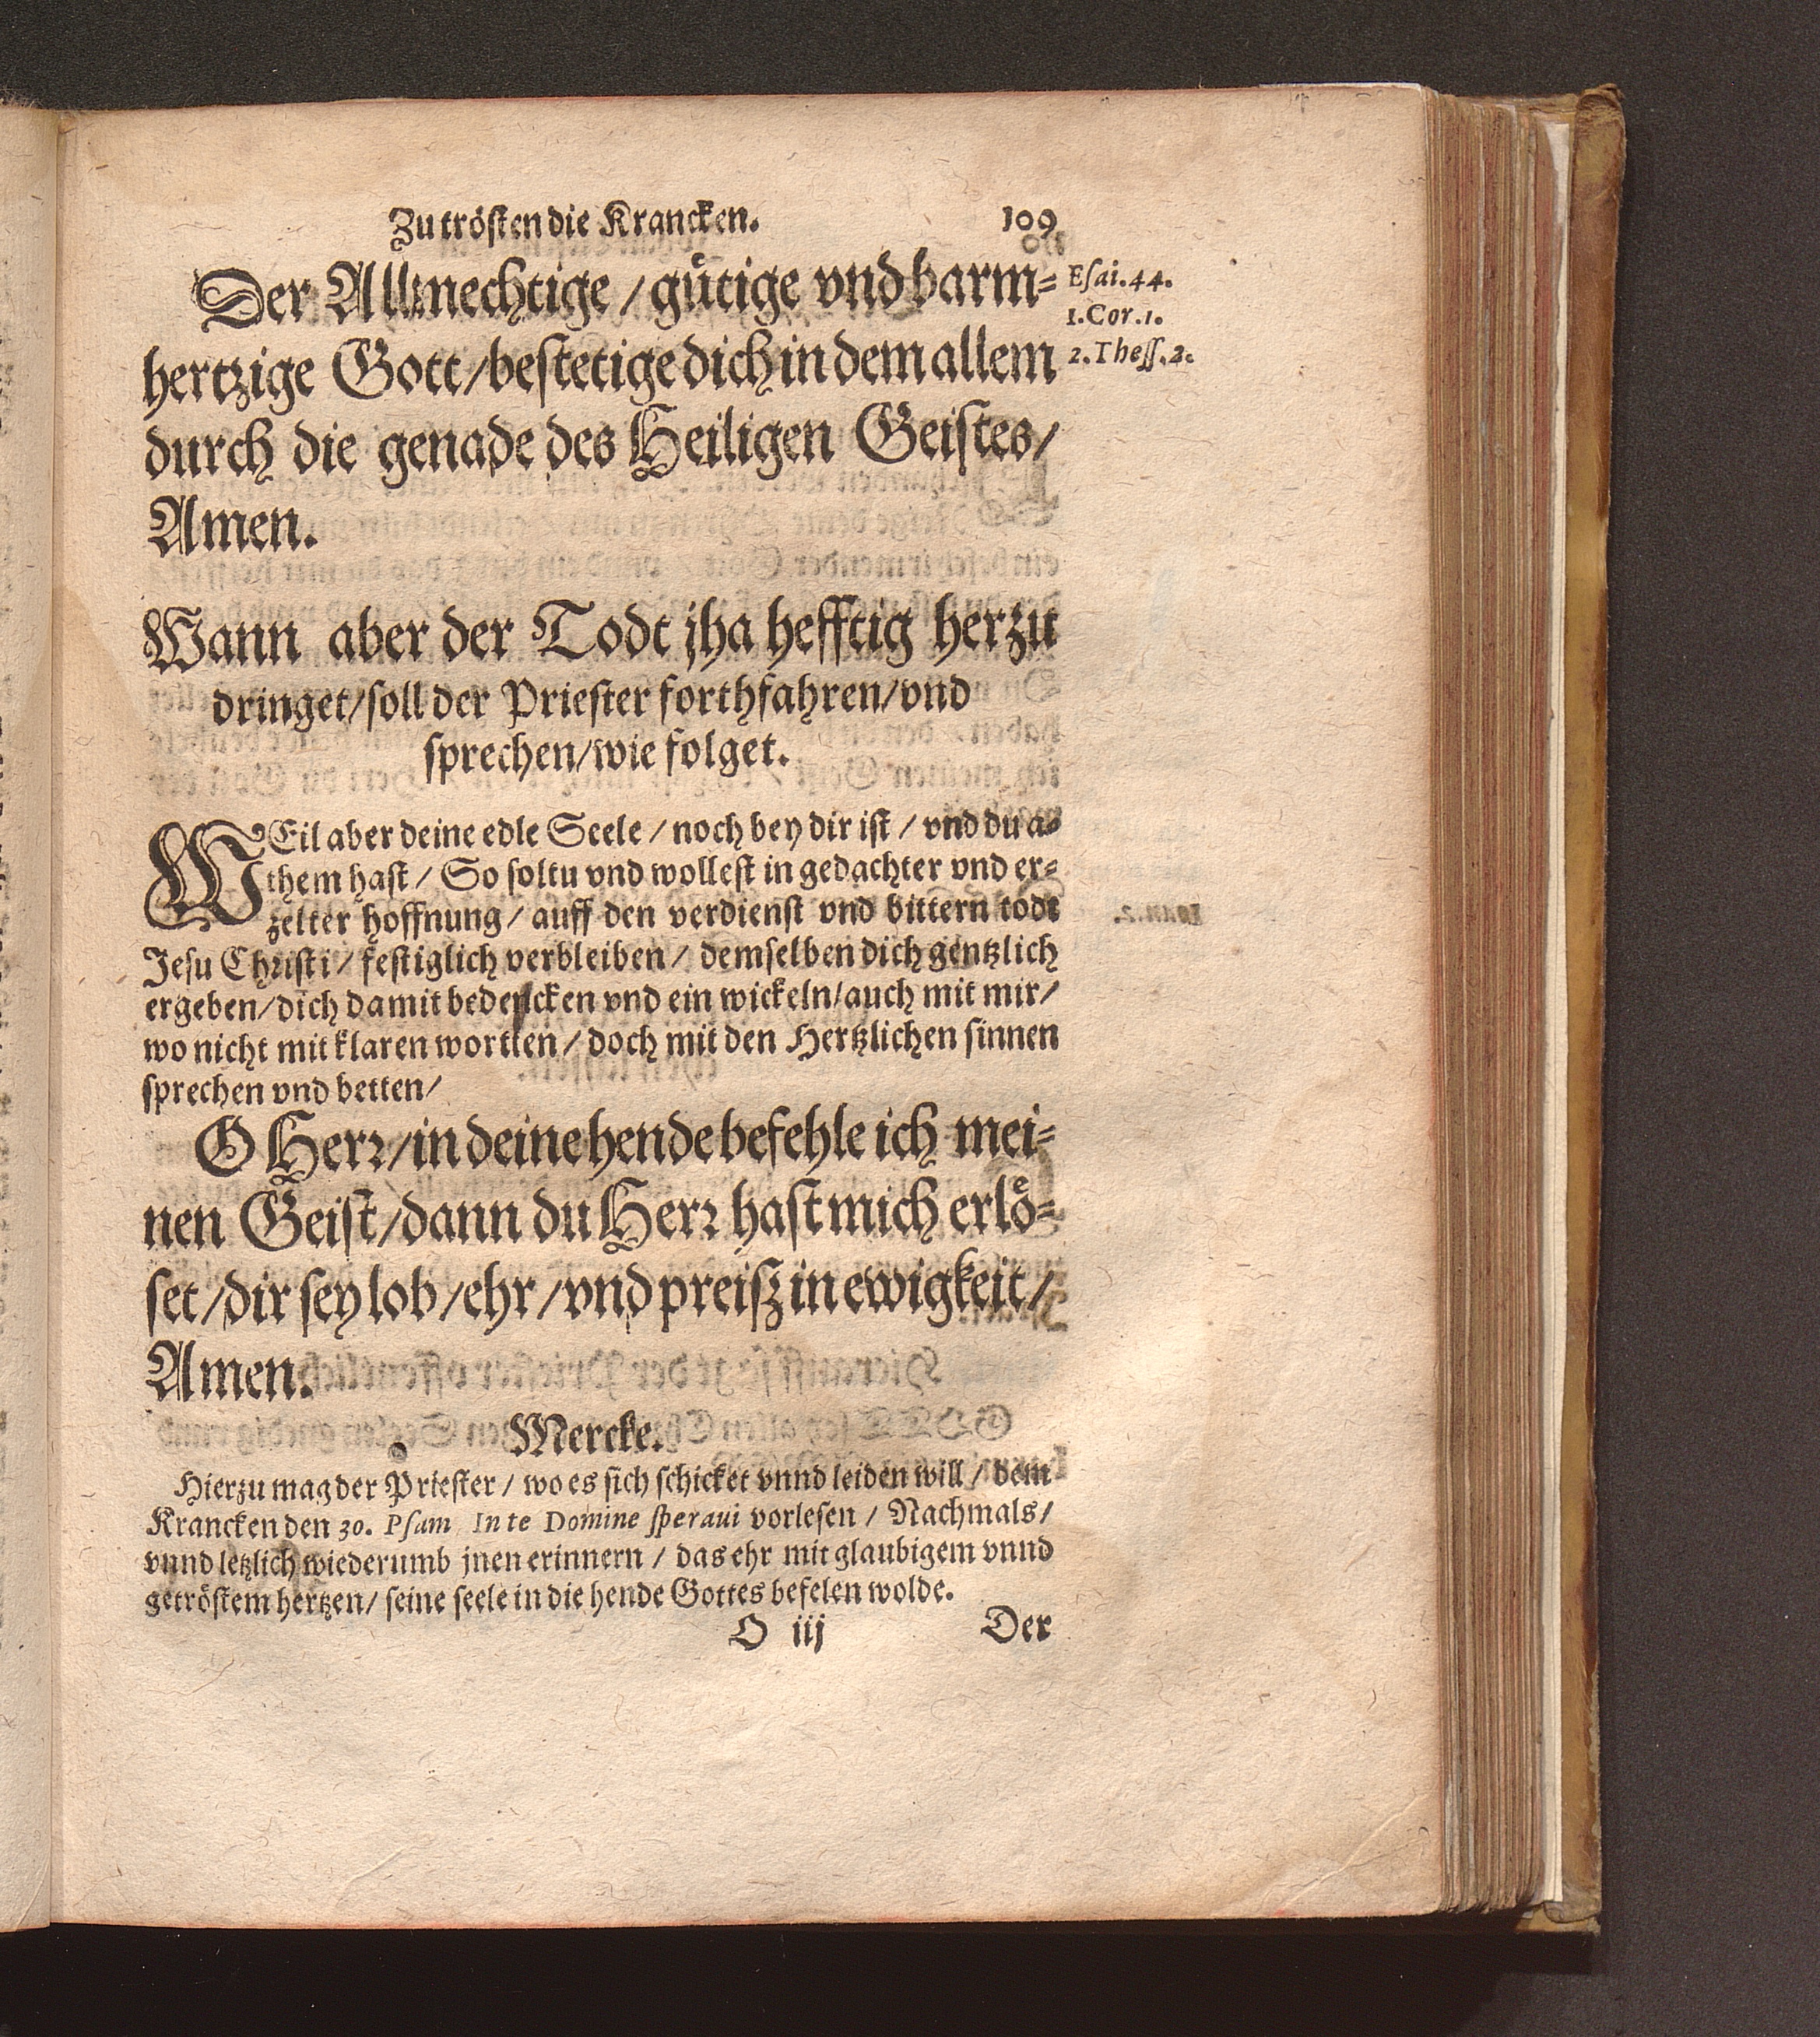 Zu trösten die Krancken. 109
Der Allmechtige / gütige vnd barm- Esai. 44.
1. Cor. 1.
hertzige Gott / bestetige dich in dem allem 2. Thess. 2.
durch die genade des Heiligen Geistes /
Amen.
Wann aber der Todt jha hefftig herzu
dringet / soll der Priester forthfahren / vnd
sprechen / wie folget.
WEil aber deine edle Seele / noch bey dir ist / vnd du a-
them hast / So soltu vnd wollest in gedachter vnd er-
zelter hoffnung / auff den verdienst vnd bittern todt
Jesu Christi / festiglich verbleiben / demselben dich gentzlich
ergeben / dich damit bedencken vnd ein wickeln / auch mit mir /
wo nicht mit klaren wortten / doch mit den Hertzlichen sinnen
sprechen vnd betten /
O Herr / in deine hende befehle ich mei-
nen Geist / dann du Herr hast mich erlö-
set / dir sey lob / ehr / vnd preisz in ewigkeit /
Amen.
Mercke.
Hierzu mag der Priester / wo es sich schicket vnnd leiden will / dem
Krancken den 30. Psam In te Domine speraui vorlesen / Nachmals /
vnnd letzlich wiederumb jnen erinnern / das ehr mit glaubigem vnnd
getröstem hertzen / seine seele in die hende Gottes befelen wolde.
O iij Der